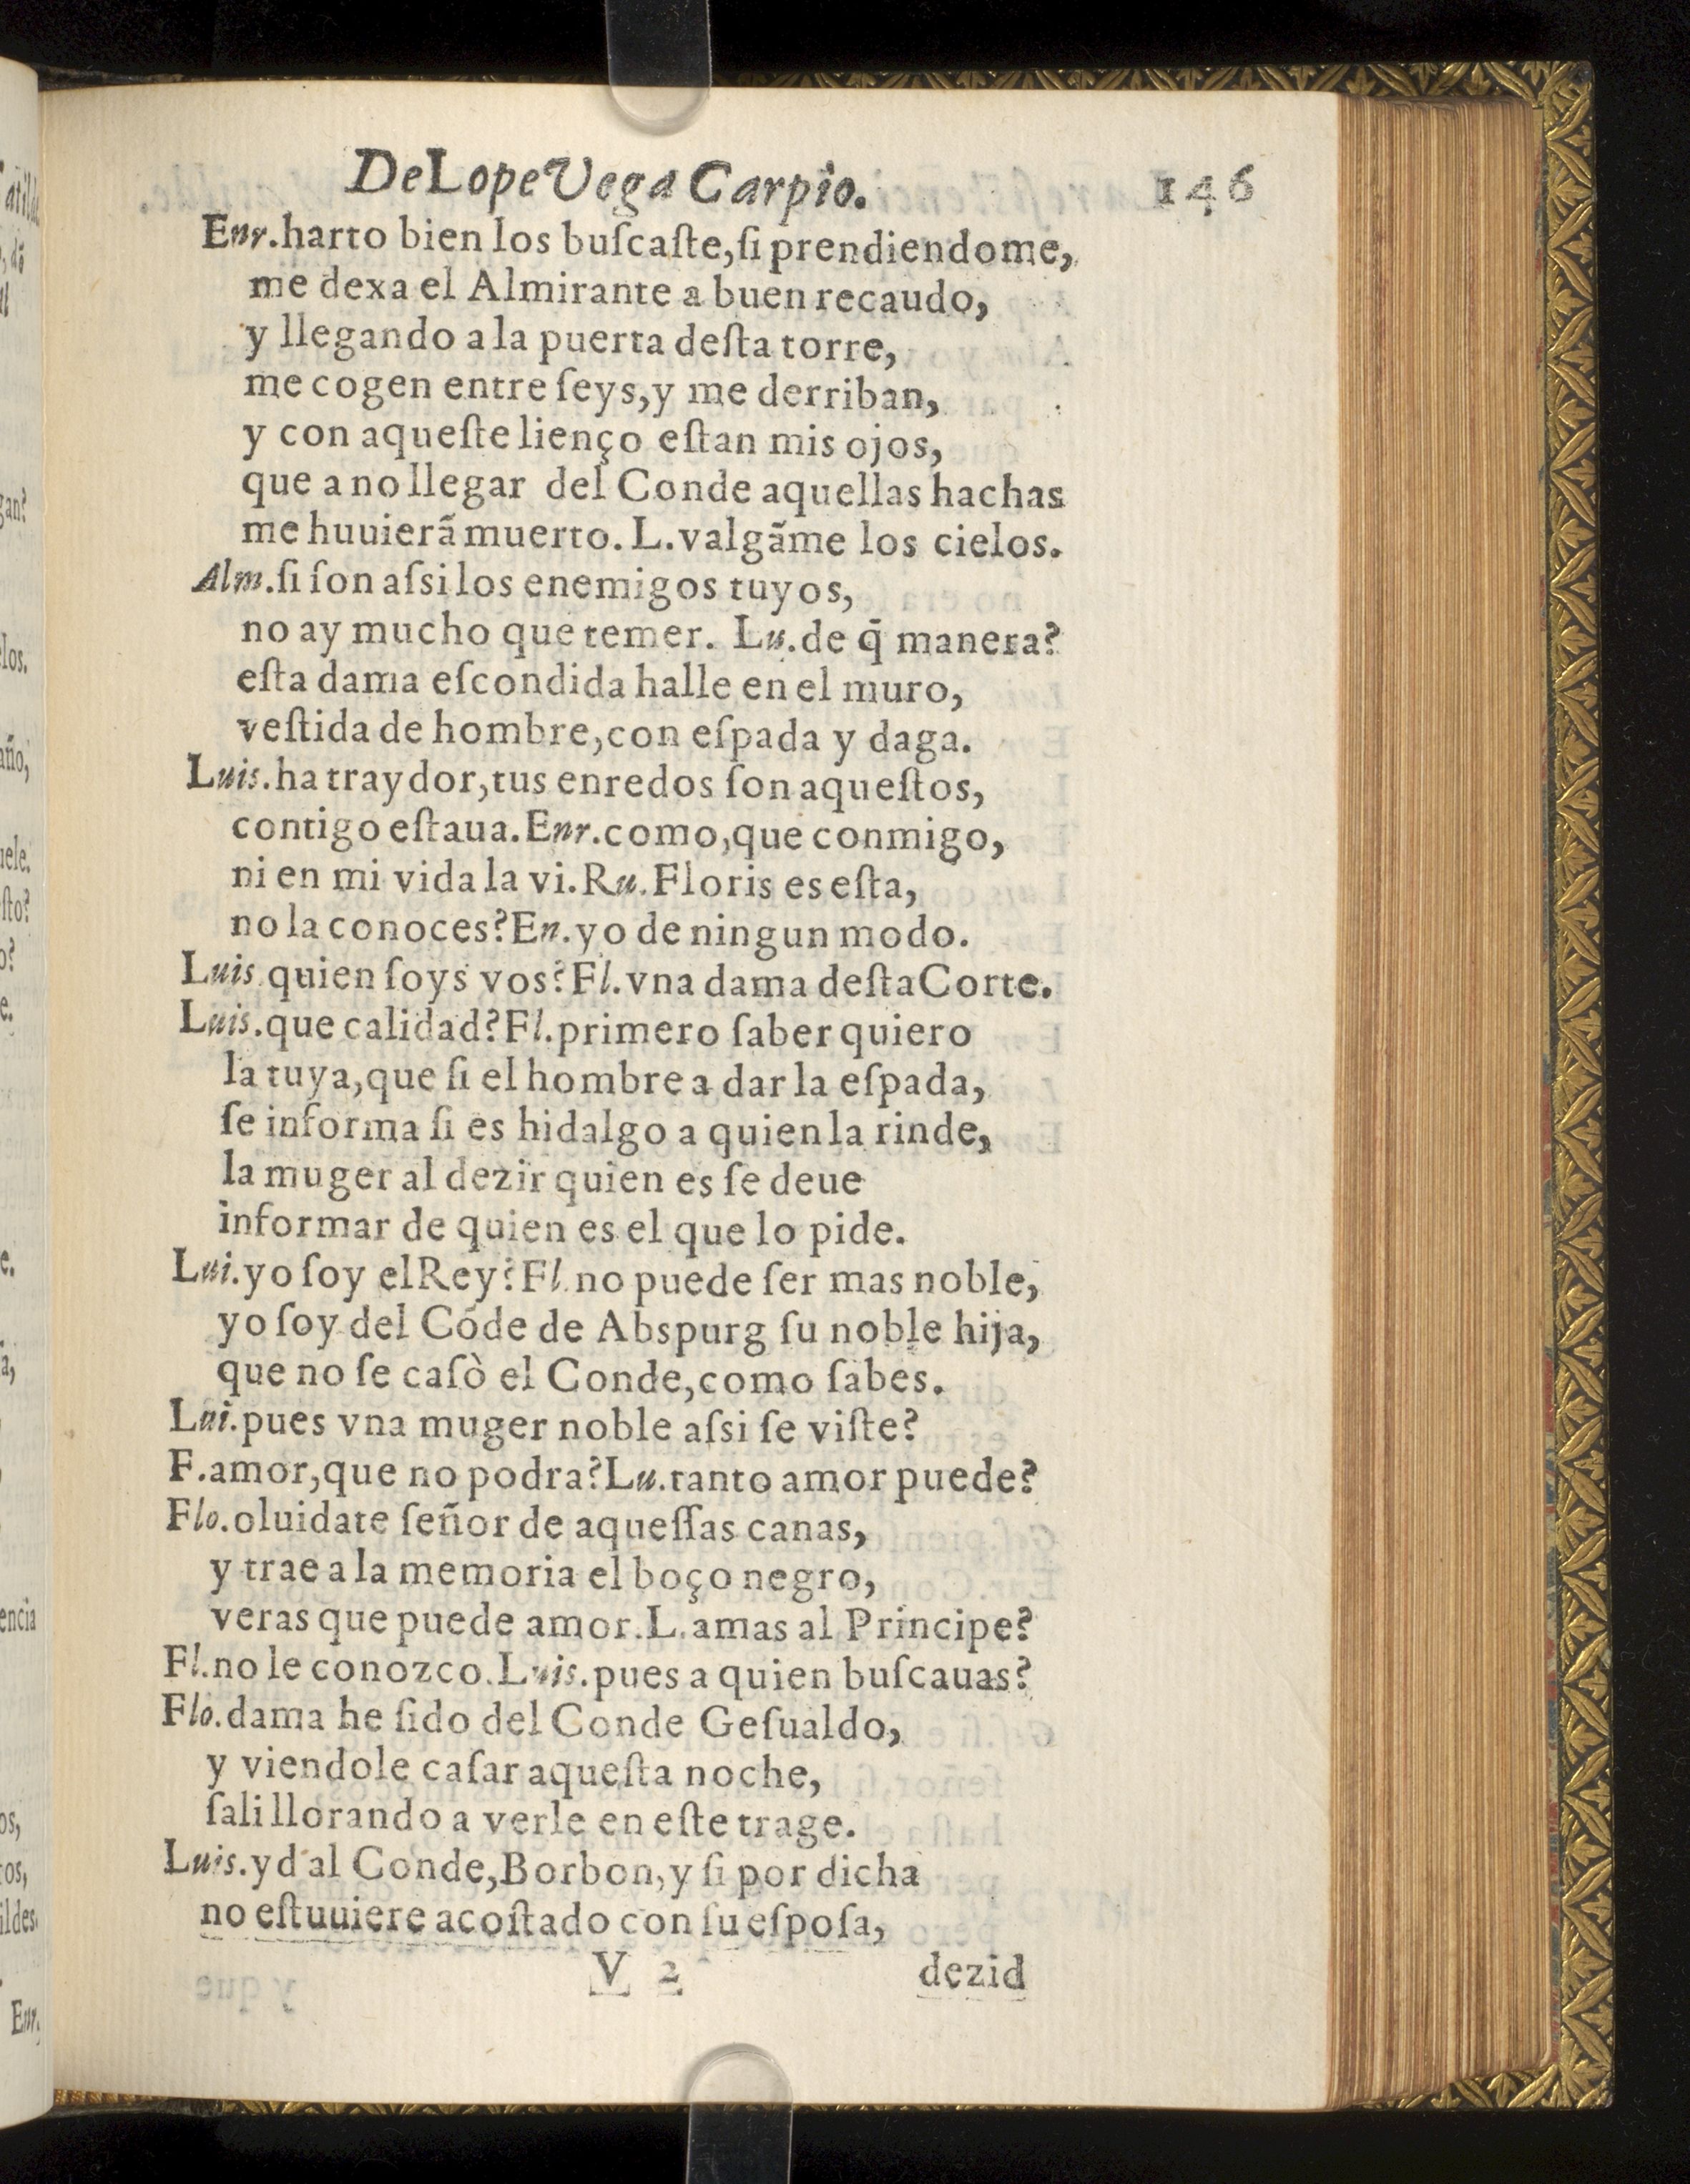 De Lope Vega Carpio. 146
Enr.harto bien los buſcaſte,ſi prendiendome,
me dexa el Almirante a buen recaudo,
y llegando a la puerta deſta torre,
me cogen entre ſeys,y me derriban,
y con aqueſte lienço eſtan mis ojos,
que a no llegar del Conde aquellas hachas
me huuierã muerto. L.valgãme los cielos.
Alm.ſi ſon aſsi los enemigos tuyos,
no ay mucho que temer. Lu.de q̃ manera?
eſta dama eſcondida halle en el muro,
veſtida de hombre,con eſpada y daga.
Luis.ha traydor,tus enredos ſon aqueſtos,
contigo eſtaua.Enr.como,que conmigo,
ni en mi vida la vi.Ru.Floris es eſta,
no la conoces?En.yo de ningun modo.
Luis quien ſoys vos?Fl.vna dama deſta Corte.
Luis.que calidad?Fl.primero ſaber quiero
la tuya,que ſi el hombre a dar la eſpada,
ſe informa ſi es hidalgo a quien la rinde,
la muger al dezir quien es ſe deue
informar de quien es el que lo pide.
Lui.yo ſoy el Rey?Fl.no puede ſer mas noble,
yo ſoy del Códe de Abspurg ſu noble hija,
que no ſe caſò el Conde,como ſabes.
Lui.pues vna muger noble aſsi ſe viſte?
F.amor,que no podra?Lu.tanto amor puede?
Flo.oluidate ſeñor de aqueſſas canas,
y trae a la memoria el boço negro,
veras que puede amor.L.amas al Principe?
Fl.no le conozco.Luis.pues a quien buſcauas?
Flo.dama he ſido del Conde Geſualdo,
y viendole caſar aqueſta noche,
ſali llorando a verle en eſte trage.
Luis.yd al Conde,Borbon,y ſi por dicha
no eſtuuiere acoſtado con ſu eſpoſa,
V 2 dezid